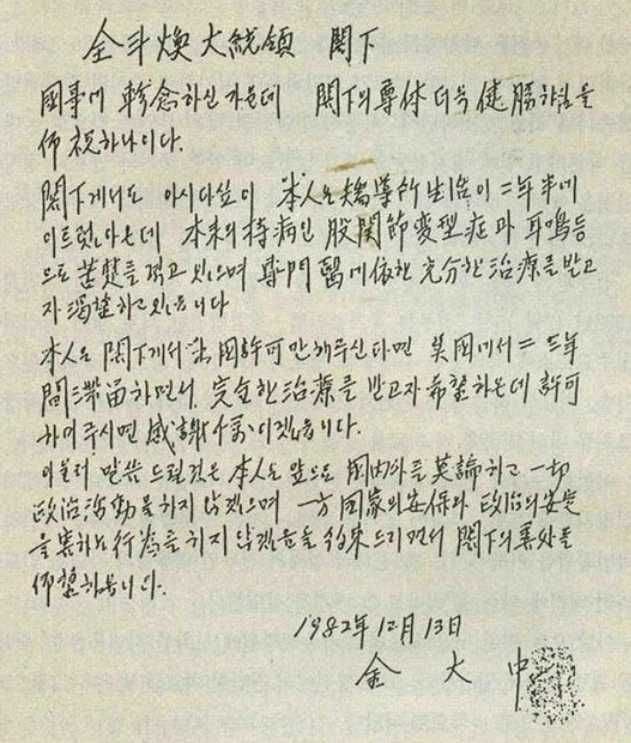 全斗煥大統領 閣下
國事에 軫念하신 가운데 閣下의 尊体 더욱 健勝하심을
仰祝하나이다.
閣下께서도 아시다싶이 本人은 矯導所 生活이 二年半에
이르렀아온데 本来의 持病인 股関節変型症과 耳鳴等
으로 苦楚를 격고 있으며 専門醫에 依한 充分한 治療를 받고
자 渴望하고 있읍니다
本人은 閣下께서 出国許可만 해주신다면 美国에서 二·三年
間 滞留하면서, 完全한 治療를 받고자 希望하온데 許可
하여 주시면 感謝千萬이겠읍니다.
아울러 말씀 드릴것은 本人은 앞으로 国内外를 莫論하고 一切
政治活動을 하지 않겠으며 一方 国家의 安保와 政治의 安定
을 害하는 行為를 하지 않겠음을 約束드리면서 閣下의 善処를
仰望하옵니다.
1982年 12月 13日
金 大 中